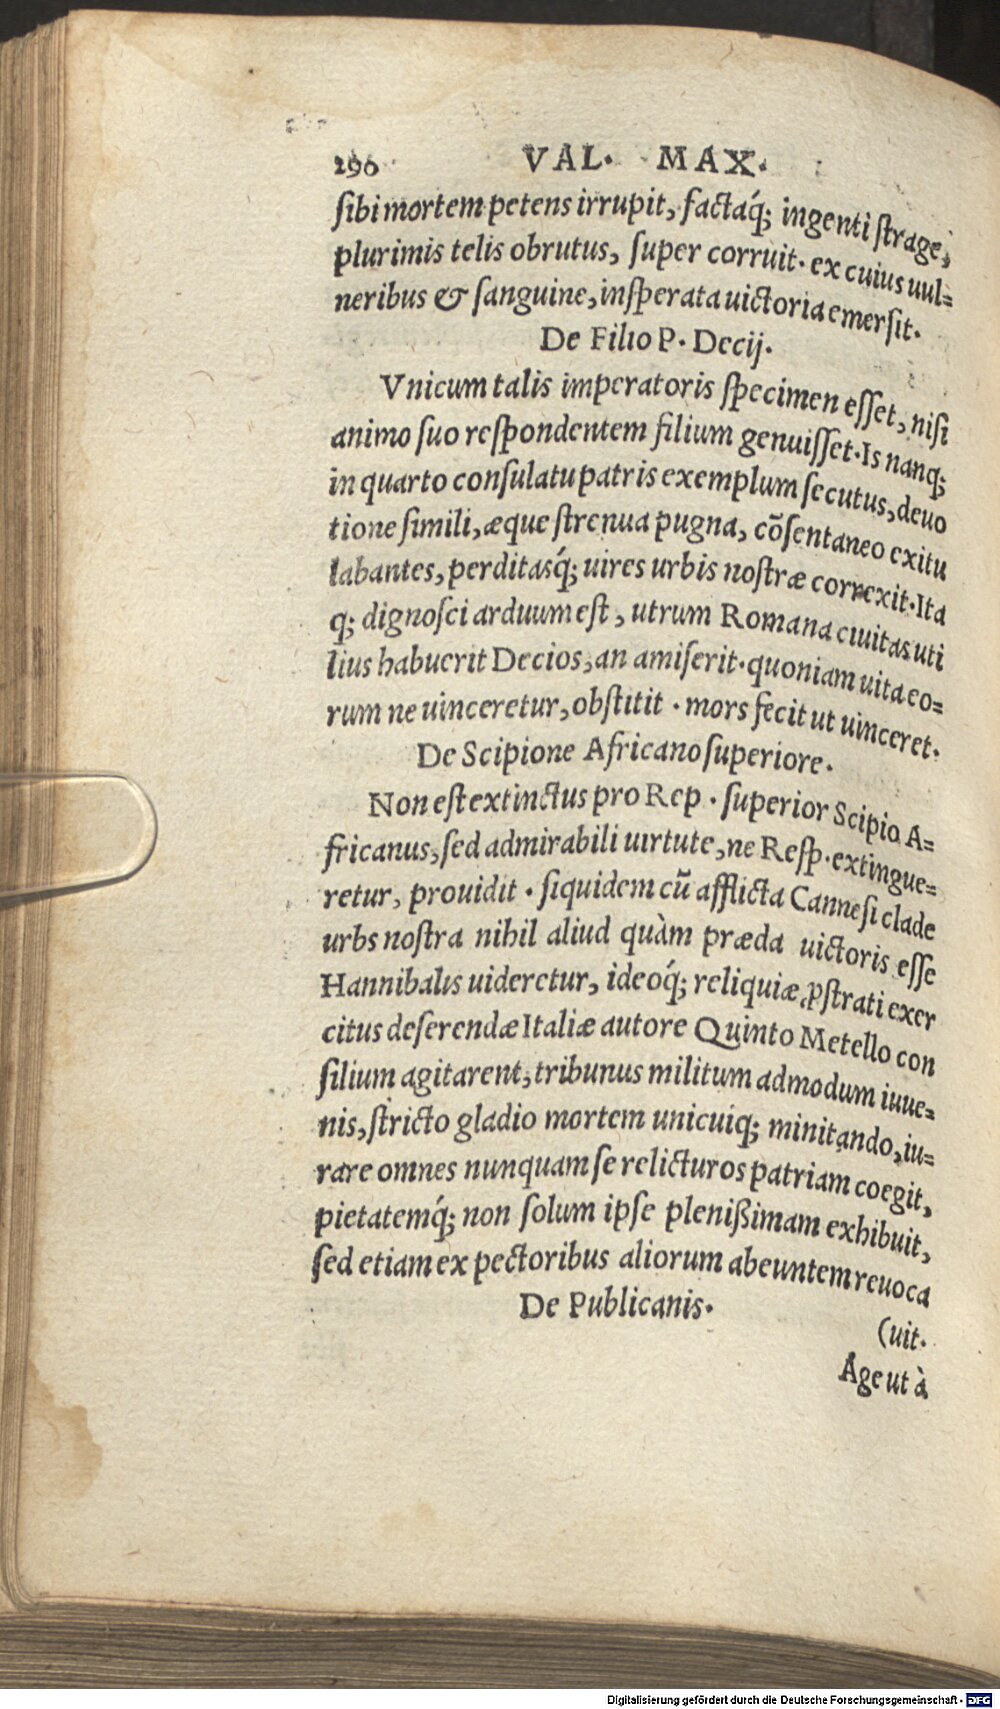 290 VAL. MAX.
sibi mortem petens irrupit, factaq́; ingenti strage,
plurimis telis obrutus, super corruit. ex cuius uul=
neribus & sanguine, insperata uictoria emersit.
De Filio P. Decij.
Vnicum talis imperatoris specimen esset, nisi
animo suo respondentem filium genuisset. Is nanq;
in quarto consulatu patris exemplum secutus, deuo
tione simili, æque strenua pugna, cõsentaneo exitu
labantes, perditasq́; uires urbis nostræ correxit. Ita
q; dignosci arduum est, utrum Romana ciuitas uti
lius habuerit Decios, an amiserit. quoniam uita eo=
rum ne uinceretur, obstitit. mors fecit ut uinceret.
De Scipione Africano superiore.
Non est extinctus pro Rep. superior Scipio A=
fricanus, sed admirabili uirtute, ne Resp. extingue=
retur, prouidit. siquidem cũ afflicta Cannesi clade
urbs nostra nihil aliud quàm præda uictoris esse
Hannibalis uideretur, ideoq́; reliquiæ ꝓstrati exer
citus deserendæ Italiæ autore Quinto Metello con
silium agitarent, tribunus militum admodum iuue=
nis, stricto gladio mortem unicuiq; minitando, iu=
rare omnes nunquam se relicturos patriam coegit,
pietatemq́; non solum ipse plenißimam exhibuit,
sed etiam ex pectoribus aliorum abeuntem reuoca
De Publicanis. (uit.
Age ut à
Digitalisierung gefördert durch die Deutsche Forschungsgemeinschaft - DFG